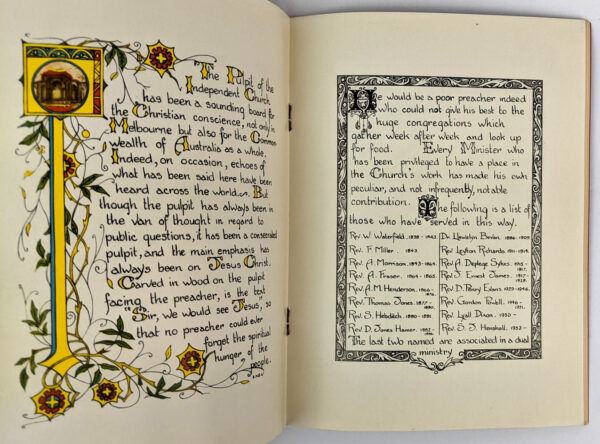 "The Pulpit of the
Independent Church
has been a sounding board for
the Christian conscience, not only in
Melbourne but also for the Common
wealth of Australia as a whole.
Indeed, on occasion, echoes of
what has been said here have been
heard across the world. But
though the pulpit has always been in
the van of thought in regard to
public questions, it has been a consecrated
pulpit, and the main emphasis has
always been on Jesus Christ.
Carved in wood on the pulpit
facing the preacher, is the text
"Sir, we would see Jesus", so
that no preacher could ever
forget the spiritual
hunger of the
people.
He would be a poor preacher indeed
who could not give his best to the
huge congregations which
gather week after week and look up
for food. Every Minister who
has been privileged to have a place
in the Church's work has made his own
peculiar, and not infrequently, notable
contribution. The following is a list of
those who have served in this way.
Rev. W. Waterfield. 1838-1843.
Rev. F. Miller. 1843.
Rev. A. Morrison. 1843-1864.
Rev. A. Fraser. 1864-1865.
Rev. A. M. Henderson. 1866-
Rev. Thomas Jones. 1877-
1880.
Rev. S. Hebditch. 1880-1881.
Rev. D. Jones Hamer. 1882-
Dr. Llewelyn Bevan. 1886-1909.
Rev. Leyton Richards. 1911-1914.
Rev. A. Depledge Sykes. 1915-
Rev. J. Ernest James. 1917-
Rev. D. Perry Evans 1929-1946.
Rev. Gordon Powell. 1946-
Rev. Lyall Dixon. 1950-
Rev. S. J. Henshall. 1952-
The last two named are associated in a dual
ministry